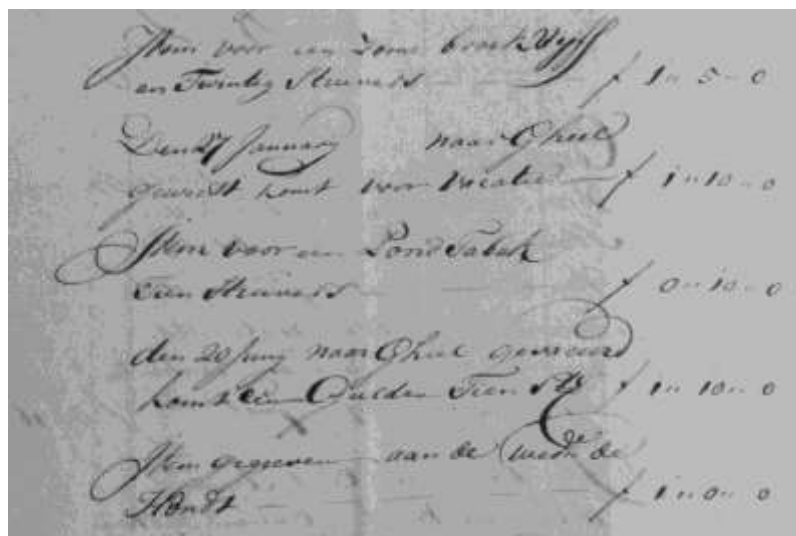 Item voor een Zome broek Vyff
en Twintig Stuivers f 1 „ 5 „ 0
Den 27 January naar Gheel
geweest komt voor vacatie f 1 „ 10 „ 0
Item voor een Pond Tabak
Tien Stuivers f 0 „ 10 „ 0
den 20 Juny naar Gheel geweest
komt een Gulden Tien St. f 1 „ 10 „ 0
Item gegeven aan de wede de
Hondt f 1 „ 0 „ 0